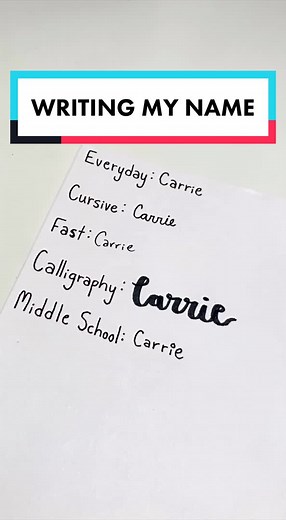 WRITING MY NAME
Everyday: Carrie
Cursive: Carrie
Fast: Carrie
Calligraphy: Carrie
Middle School: Carrie